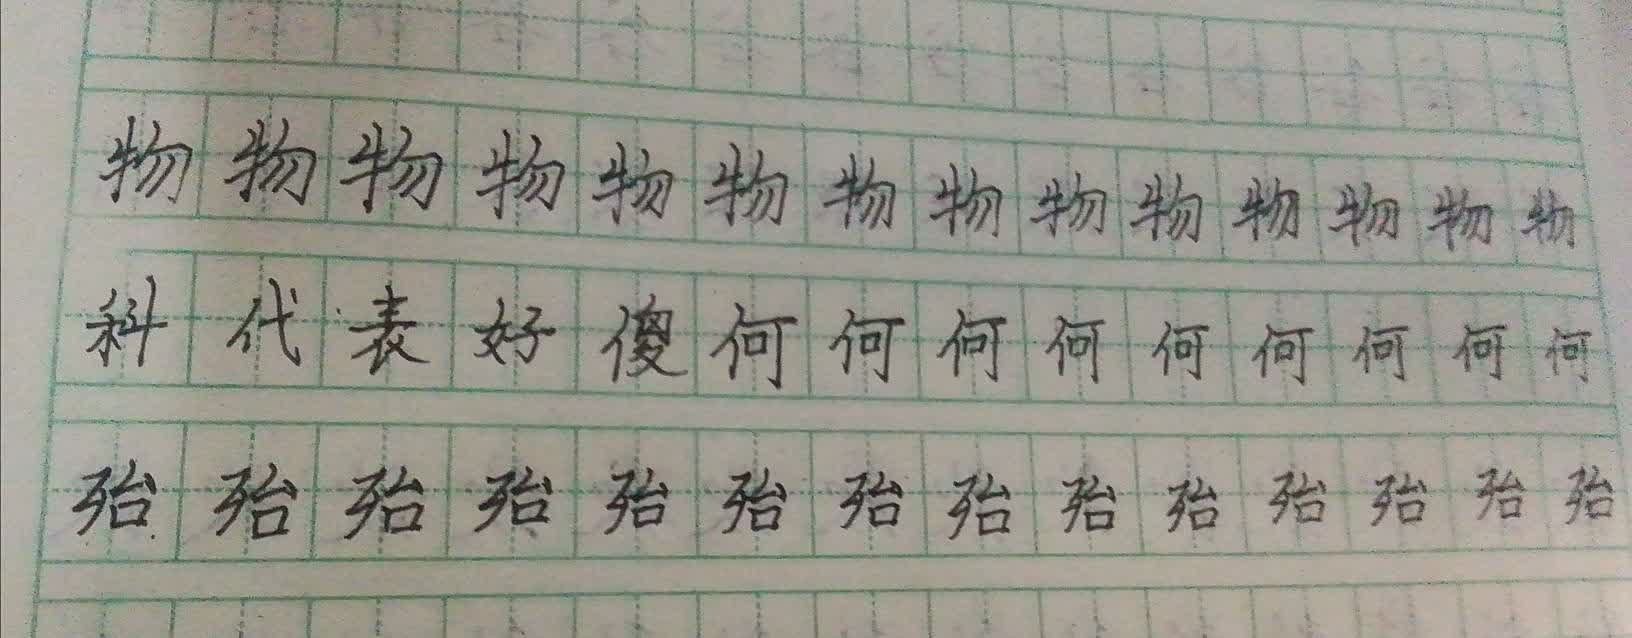 物物物物物物物物物物物物物物
科代表好傻何何何何何何何何何
殆殆殆殆殆殆殆殆殆殆殆殆殆殆